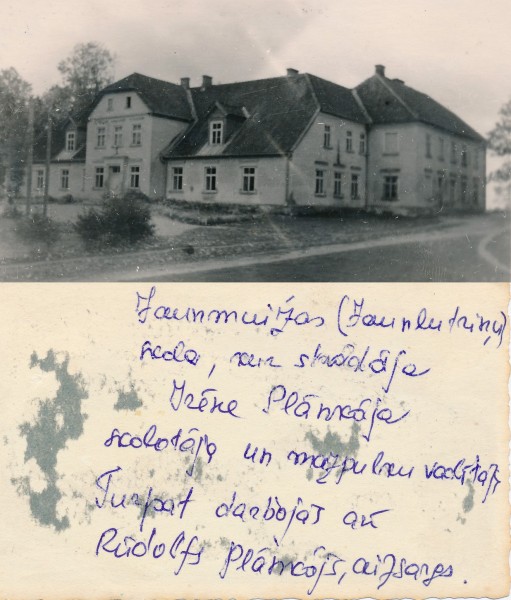 Jaunmuižas (Jaunlutriņu)
skola, kur strādāja
Irēne Plānkāja
skolotāja un mazpulku vadītāja
Turpat darbojās arī
Rūdolfs Plānkājs, aizsargs.